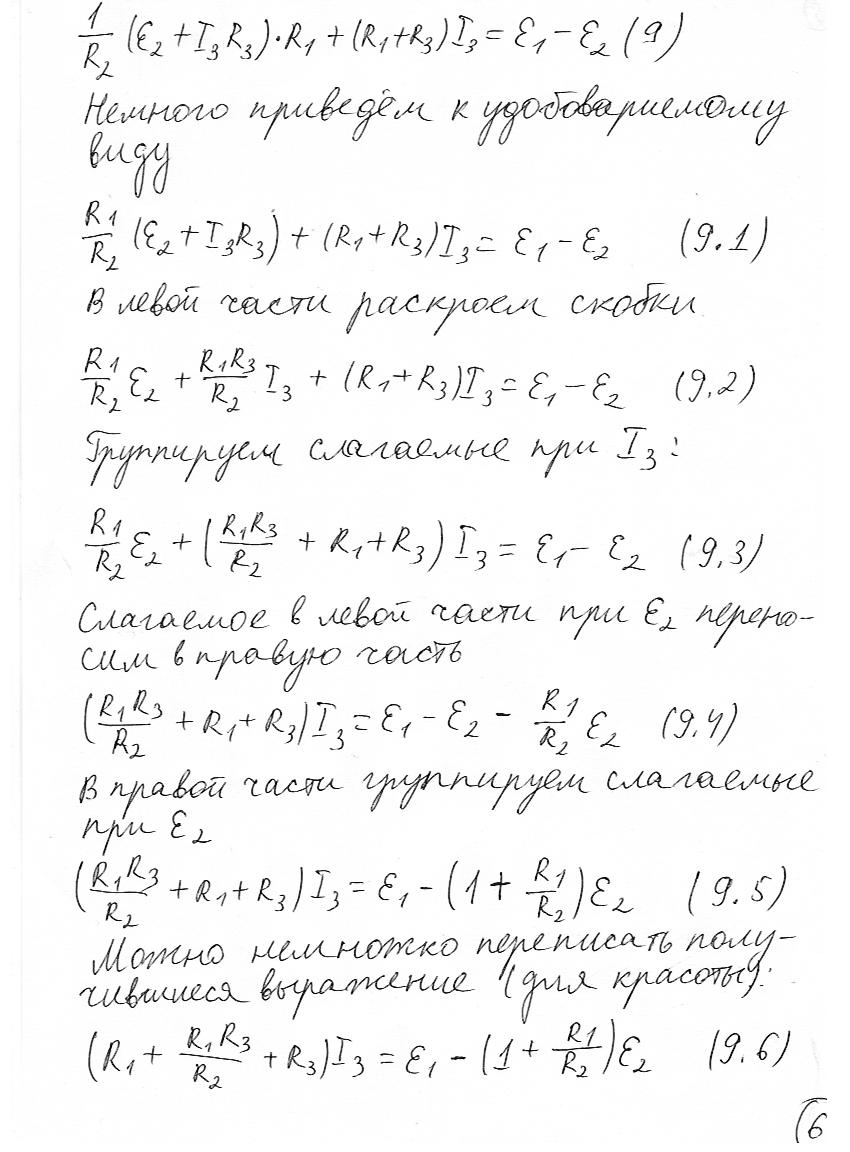 1/R₂ (ℰ₂ + I₃R₃)·R₁ + (R₁+R₃)I₃ = ℰ₁ − ℰ₂ (9)
Немного приведём к удобовариемому
виду
R₁/R₂ (ℰ₂ + I₃R₃) + (R₁+R₃)I₃ = ℰ₁ − ℰ₂ (9.1)
В левой части раскроем скобки
R₁/R₂ ℰ₂ + R₁R₃/R₂ I₃ + (R₁+R₃)I₃ = ℰ₁ − ℰ₂ (9.2)
Группируем слагаемые при I₃:
R₁/R₂ ℰ₂ + (R₁R₃/R₂ + R₁+R₃) I₃ = ℰ₁ − ℰ₂ (9.3)
Слагаемое в левой части при ℰ₂ перено-
сим в правую часть
(R₁R₃/R₂ + R₁+R₃)I₃ = ℰ₁ − ℰ₂ − R₁/R₂ ℰ₂ (9.4)
В правой части группируем слагаемые
при ℰ₂
(R₁R₃/R₂ + R₁+R₃)I₃ = ℰ₁ − (1 + R₁/R₂)ℰ₂ (9.5)
Можно немножко переписать полу-
чившиеся выражение (для красоты):
(R₁ + R₁R₃/R₂ + R₃)I₃ = ℰ₁ − (1 + R₁/R₂)ℰ₂ (9.6)
6